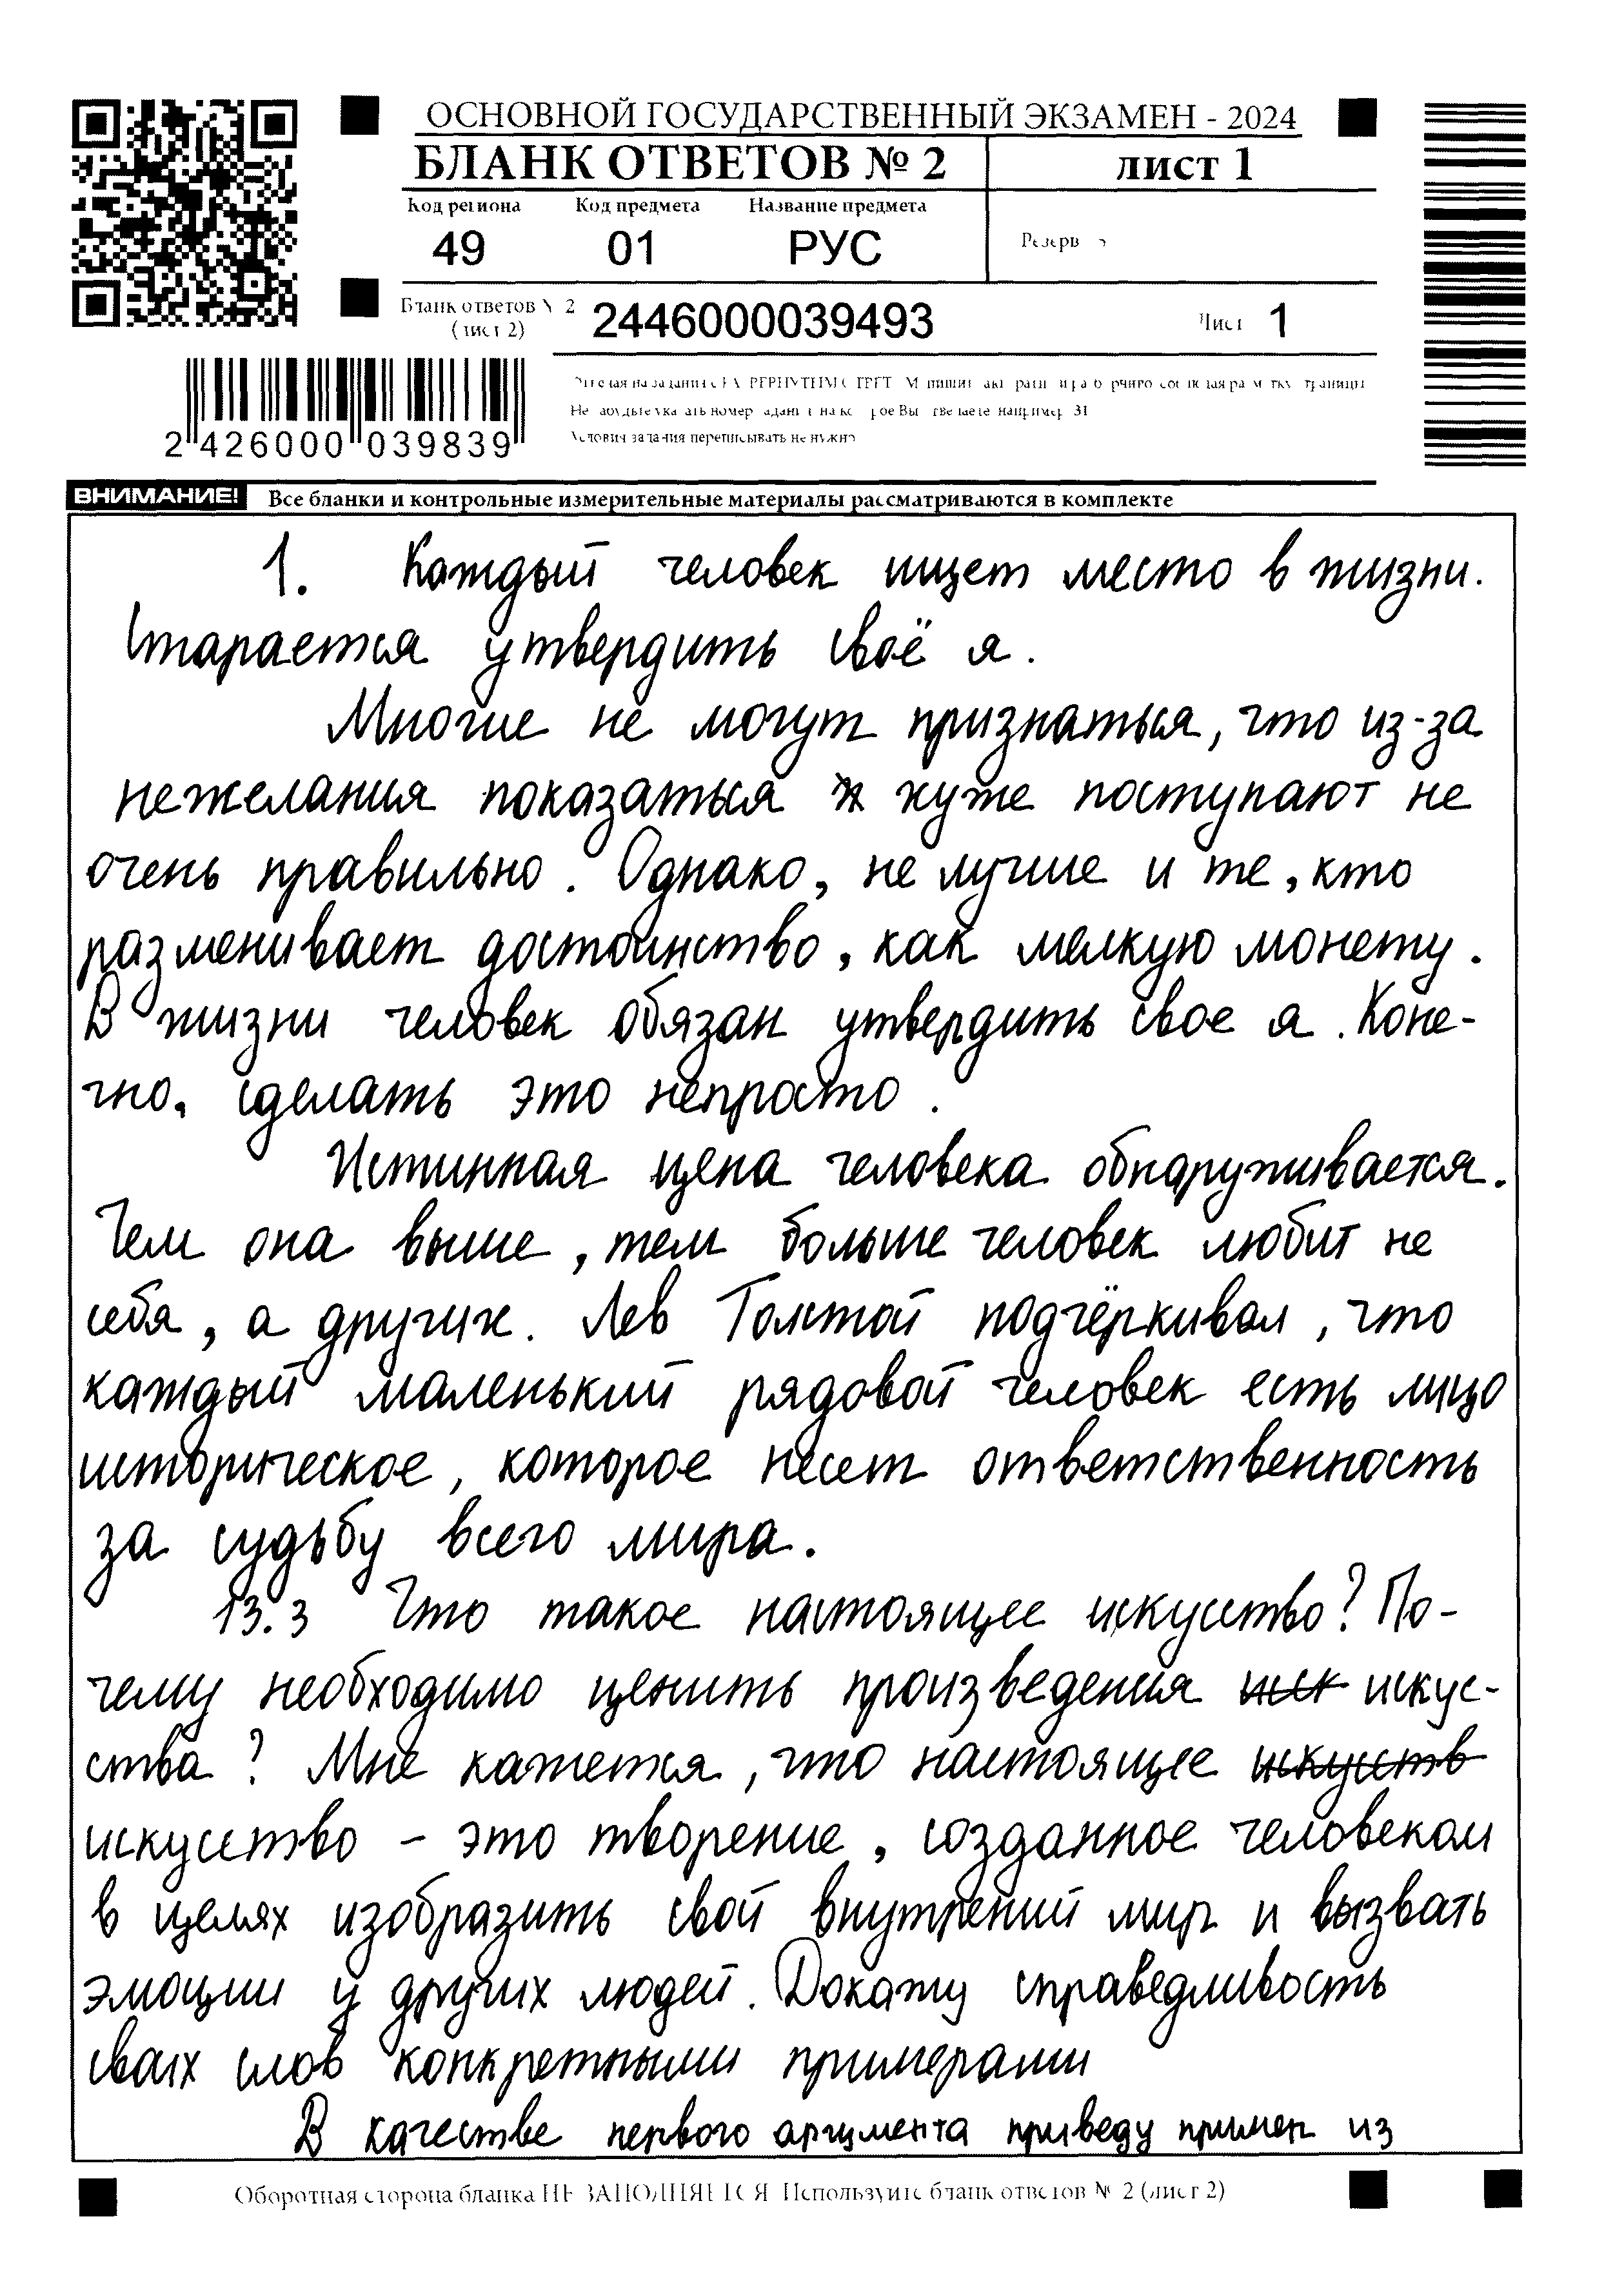 ОСНОВНОЙ ГОСУДАРСТВЕННЫЙ ЭКЗАМЕН - 2024
БЛАНК ОТВЕТОВ № 2
лист 1
Код региона Код предмета Название предмета
49 01 РУС
Резерв
Бланк ответов № 2
(лист 2)
2446000039493
Лист 1
2 426000 039839
Условия задания переписывать не нужно
ВНИМАНИЕ! Все бланки и контрольные измерительные материалы рассматриваются в комплекте
1. Каждый человек ищет место в жизни.
Старается утвердить своё я.
Многие не могут признаться, что из-за
нежелания показаться хуже поступают не
очень правильно. Однако, не лучше и те, кто
разменивает достоинство, как мелкую монету.
В жизни человек обязан утвердить свое я. Коне-
чно, сделать это непросто.
Истинная цена человека обнаруживается.
Чем она выше, тем больше человек любит не
себя, а других. Лев Толстой подчёркивал, что
каждый маленький рядовой человек есть лицо
историческое, которое несет ответственность
за судьбу всего мира.
13.3 Что такое настоящее искусство? По-
чему необходимо ценить произведения иск искус-
ства? Мне кажется, что настоящее искусств
искусство - это творение, созданное человеком
в целях изобразить свой внутрений мир и вызвать
эмоции у других людей. Докажу справедливость
своих слов конкретными примерами
В качестве первого аргумента приведу пример из
Оборотная сторона бланка НЕ ЗАПОЛНЯЕТСЯ. Используйте бланк ответов № 2 (лист 2)